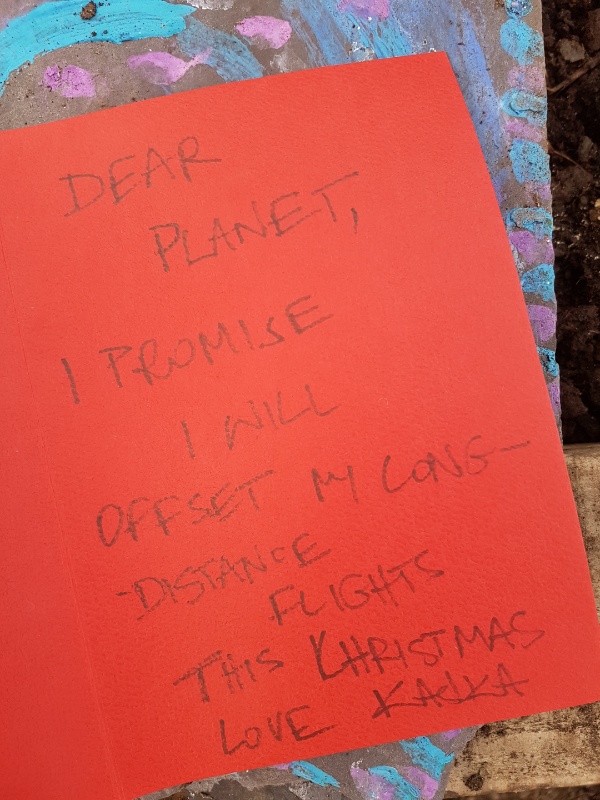 DEAR
PLANET,
I PROMISE
I WILL
OFFSET MY LONG-
-DISTANCE
FLIGHTS
THIS CHRISTMAS
LOVE KASKA